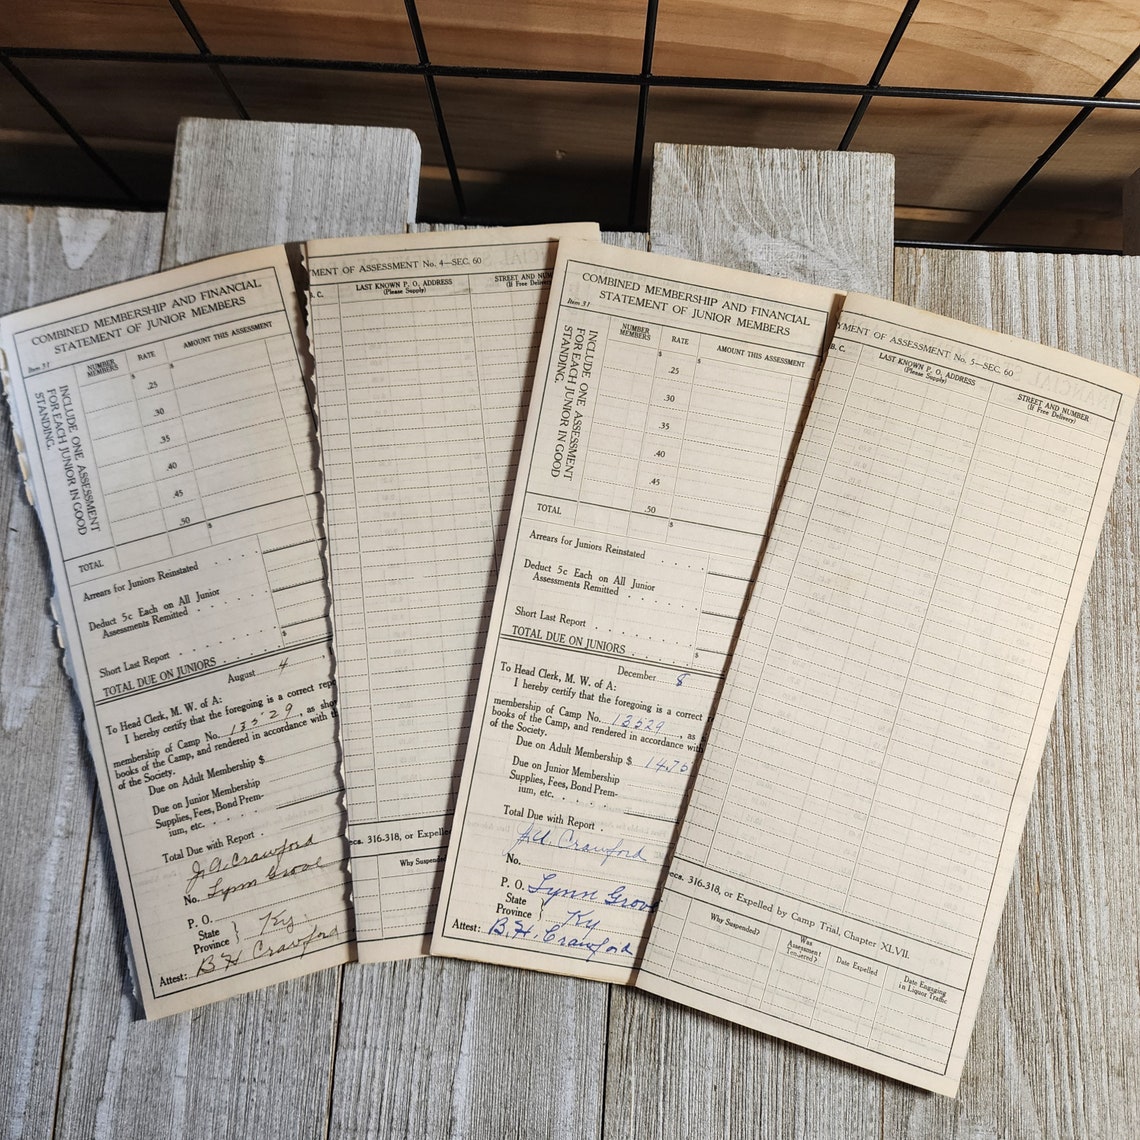 COMBINED MEMBERSHIP AND FINANCIAL
STATEMENT OF JUNIOR MEMBERS
Item 37
NUMBER MEMBERS
RATE
AMOUNT THIS ASSESSMENT
$ $
INCLUDE ONE ASSESSMENT
FOR EACH JUNIOR IN GOOD
STANDING.
.25
.30
.35
.40
.45
.50
TOTAL
$
Arrears for Juniors Reinstated
Deduct 5c Each on All Junior
Assessments Remitted
Short Last Report
TOTAL DUE ON JUNIORS
$
August 4
To Head Clerk, M. W. of A.:
I hereby certify that the foregoing is a correct
membership of Camp No. 13529, as
books of the Camp, and rendered in accordance with
of the Society.
Due on Adult Membership $
Due on Junior Membership
Supplies, Fees, Bond Prem-
ium, etc.
Total Due with Report
J. A. Crawford
No. Lynn Grove
P. O.
State
Province } Ky.
Attest: B H Crawford
YMENT OF ASSESSMENT No. 4—SEC. 60
B. C.
LAST KNOWN P. O. ADDRESS
(Please Supply)
STREET AND
(If Free
316-318, or Expelled
Why Suspended
COMBINED MEMBERSHIP AND FINANCIAL
STATEMENT OF JUNIOR MEMBERS
Item 37
NUMBER MEMBERS
RATE
AMOUNT THIS ASSESSMENT
$ $
INCLUDE ONE ASSESSMENT
FOR EACH JUNIOR IN GOOD
STANDING.
.25
.30
.35
.40
.45
.50
TOTAL
$
Arrears for Juniors Reinstated
Deduct 5c Each on All Junior
Assessments Remitted
Short Last Report
TOTAL DUE ON JUNIORS
$
December 8
To Head Clerk, M. W. of A.:
I hereby certify that the foregoing is a correct
membership of Camp No. 13529, as
books of the Camp, and rendered in accordance with
of the Society.
Due on Adult Membership $ 14.75
Due on Junior Membership
Supplies, Fees, Bond Prem-
ium, etc.
Total Due with Report
J. A. Crawford
No.
P. O. Lynn Grove
State
Province } Ky
Attest: B. H. Crawford
YMENT OF ASSESSMENT No. 5—SEC. 60
B. C.
LAST KNOWN P. O. ADDRESS
(Please Supply)
STREET AND NUMBER
(If Free Delivery)
ecs. 316-318, or Expelled by Camp Trial, Chapter XLVII.
Why Suspended?
Was Assessment Tendered?
Date Expelled
Date Engaging in Liquor Traffic